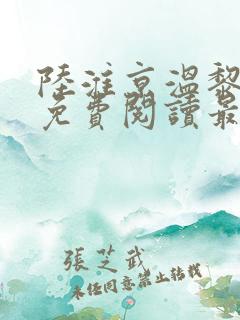 陸淮京溫黎
免費閱讀最
張芝武
未經同意禁止轉載